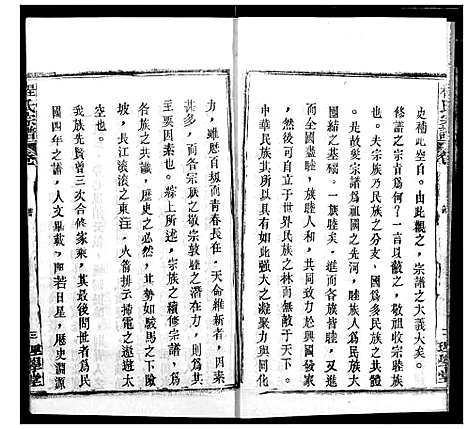 程氏宗譜
史補此空白。由此觀之，宗譜之大義大矣。
修譜之宗旨為何？一言以蔽之，敬祖收宗睦族
也。夫宗族乃民族之分支，國為多民族之共體
。是故愛宗譜為祖國之先河，睦族人為民族大
團結之基礎。一族睦矣，進而各族皆睦，
而全國盡睦，族睦人和，共同致力於興國發家
，然後可自立于世界民族之林而無敵于天下。
中華民族其所以具有如此強大之凝聚力與偉大
三 理學堂
力，雖恩百刼而青春長在，天命維新者，因其
甚多，而各宗族之敬宗敦睦之潛在力，則其
主要因素也。綜上所述，宗族之續修宗譜，為
各族之共識，歷史之必然，其勢如駿馬之下險
坡，長江滾滾之東注，火箭排云掃電之遨遊太
空也。
我族先賢曾三次合修家乘，其最後問世者為民
國四年之譜，人文畢載，炳若日星，歷史淵源
程氏宗譜 卷
譜
三 理學堂